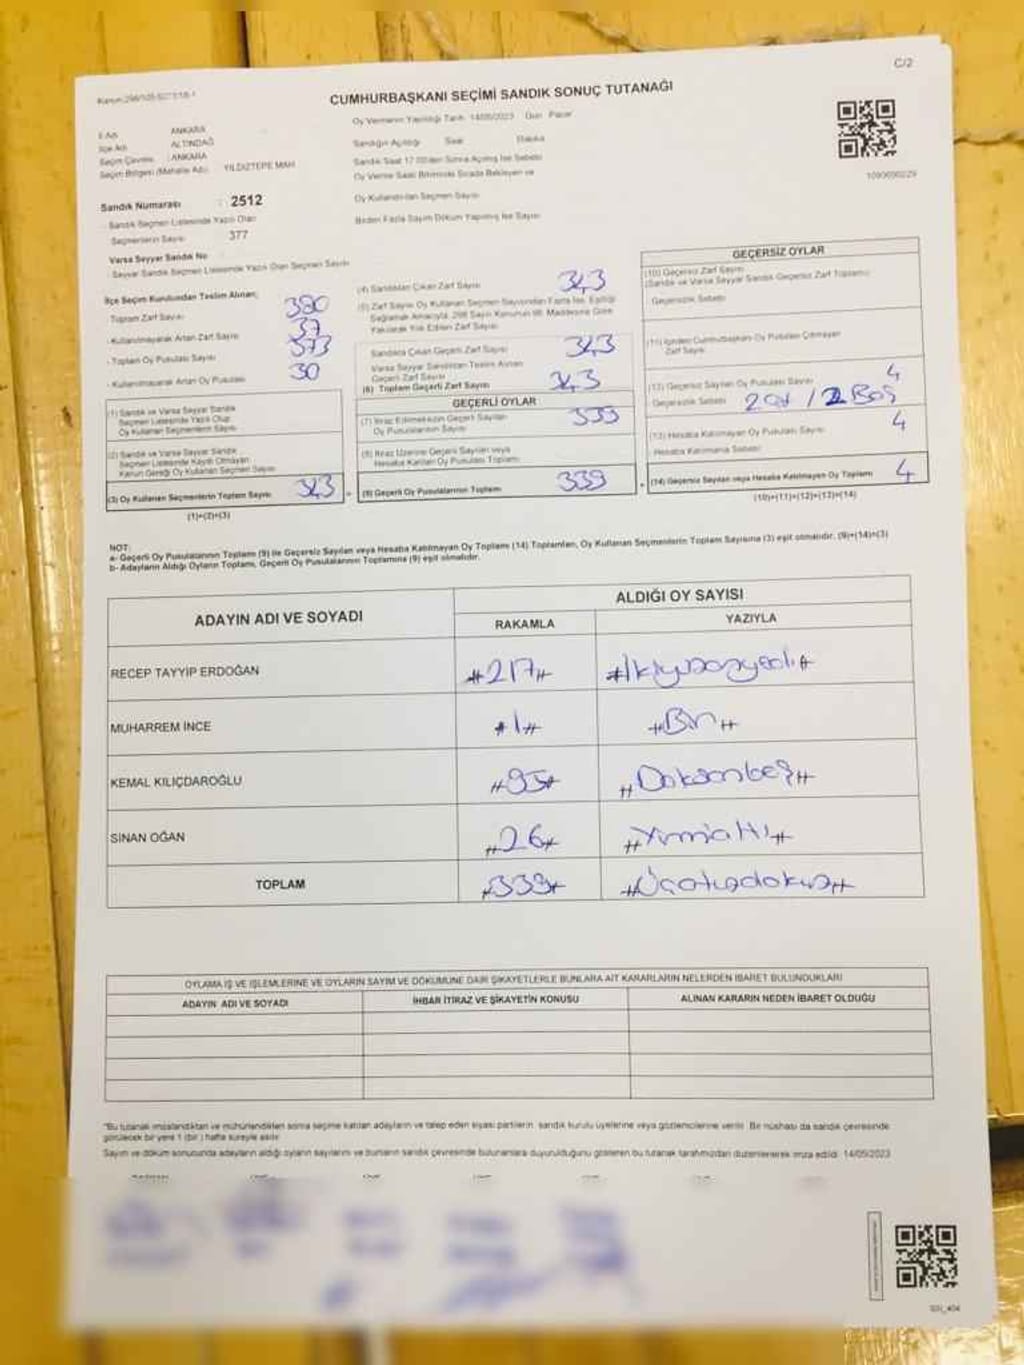 C/2
CUMHURBAŞKANI SEÇİMİ SANDIK SONUÇ TUTANAĞI
Oy Vermenin Yapıldığı Tarih 14/05/2023 Gün Pazar
İl Adı ANKARA
İlçe Adı ALTINDAĞ
Seçim Çevresi ANKARA
Seçim Bölgesi (Mahalle Adı) YILDIZTEPE MAH
Sandığın Açıldığı Saat Dakika
Sandık Saat 17.00'den Sonra Açılmış İse Sebebi
Oy Verme Saati Bitiminde Sırada Bekleyen ve
Oy Kullandırılan Seçmen Sayısı
Birden Fazla Sayım Döküm Yapılmış İse Sayısı
1090690229
Sandık Numarası : 2512
Sandık Seçmen Listesinde Yazılı Olan
Seçmenlerin Sayısı 377
Varsa Seyyar Sandık No
Seyyar Sandık Seçmen Listesinde Yazılı Olan Seçmen Sayısı
İlçe Seçim Kurulundan Teslim Alınan;
Toplam Zarf Sayısı 380
Kullanılmayarak Artan Zarf Sayısı 37
Toplam Oy Pusulası Sayısı 373
Kullanılmayarak Artan Oy Pusulası 30
(1) Sandık ve Varsa Seyyar Sandık
Seçmen Listesinde Yazılı Olup
Oy Kullanan Seçmenlerin Sayısı
(2) Sandık ve Varsa Seyyar Sandık
Seçmen Listesinde Kayıtlı Olmayan
Kanun Gereği Oy Kullanan Seçmen Sayısı
(3) Oy Kullanan Seçmenlerin Toplam Sayısı 343
(1)+(2)=(3)
(4) Sandıktan Çıkan Zarf Sayısı 343
(5) Zarf Sayısı Oy Kullanan Seçmen Sayısından Fazla İse, Eşitliği
Sağlamak Amacıyla, 298 Sayılı Kanunun 98. Maddesine Göre
Yakılarak Yok Edilen Zarf Sayısı
Sandıkta Çıkan Geçerli Zarf Sayısı 343
Varsa Seyyar Sandıktan Teslim Alınan
Geçerli Zarf Sayısı
(6) Toplam Geçerli Zarf Sayısı 343
GEÇERLİ OYLAR
(7) İtiraz Edilmeksizin Geçerli Sayılan
Oy Pusulalarının Sayısı 339
(8) İtiraz Üzerine Geçerli Sayılan veya
Hesaba Katılan Oy Pusulası Toplamı
(9) Geçerli Oy Pusulalarının Toplamı 339
GEÇERSİZ OYLAR
(10) Geçersiz Zarf Sayısı
(Sandık ve Varsa Seyyar Sandık Geçersiz Zarf Toplamı)
Geçersizlik Sebebi
(11) İçinden Cumhurbaşkanı Oy Pusulası Çıkmayan
Zarf Sayısı
(12) Geçersiz Sayılan Oy Pusulası Sayısı 4
Geçersizlik Sebebi / 2 Boş
(13) Hesaba Katılmayan Oy Pusulası Sayısı 4
Hesaba Katılmama Sebebi
(14) Geçersiz Sayılan veya Hesaba Katılmayan Oy Toplamı 4
(10)+(11)+(12)+(13)=(14)
NOT:
a- Geçerli Oy Pusulalarının Toplamı (9) ile Geçersiz Sayılan veya Hesaba Katılmayan Oy Toplamı (14) Toplamları, Oy Kullanan Seçmenlerin Toplam Sayısına (3) eşit olmalıdır. (9)+(14)=(3)
b- Adayların Aldığı Oyların Toplamı, Geçerli Oy Pusulalarının Toplamına (9) eşit olmalıdır.
ADAYIN ADI VE SOYADI ALDIĞI OY SAYISI
RAKAMLA YAZIYLA
RECEP TAYYİP ERDOĞAN #217# #İkiyüzonyedi#
MUHARREM İNCE #1# #Bir#
KEMAL KILIÇDAROĞLU #95# #Doksanbeş#
SİNAN OĞAN #26# #Yirmialtı#
TOPLAM #339# #Üçotuzdokuz#
OYLAMA İŞ VE İŞLEMLERİNE VE OYLARIN SAYIM VE DÖKÜMÜNE DAİR ŞİKAYETLERLE BUNLARA AİT KARARLARIN NELERDEN İBARET BULUNDUKLARI
ADAYIN ADI VE SOYADI İHBAR İTİRAZ VE ŞİKAYETİN KONUSU ALINAN KARARIN NEDEN İBARET OLDUĞU
*Bu tutanak imzalandıktan ve mühürlendikten sonra seçime katılan adayların ve talep eden siyasi partilerin, sandık kurulu üyelerine veya gözlemcilerine verilir. Bir nüshası da sandık çevresinde
görülecek bir yere 1 (bir ) hafta süreyle asılır.
Sayım ve döküm sonucunda adayların aldığı oyların sayılarını ve bunların sandık çevresinde bulunanlara duyurulduğunu gösteren bu tutanak tarafımızdan düzenlenerek imza edildi. 14/05/2023